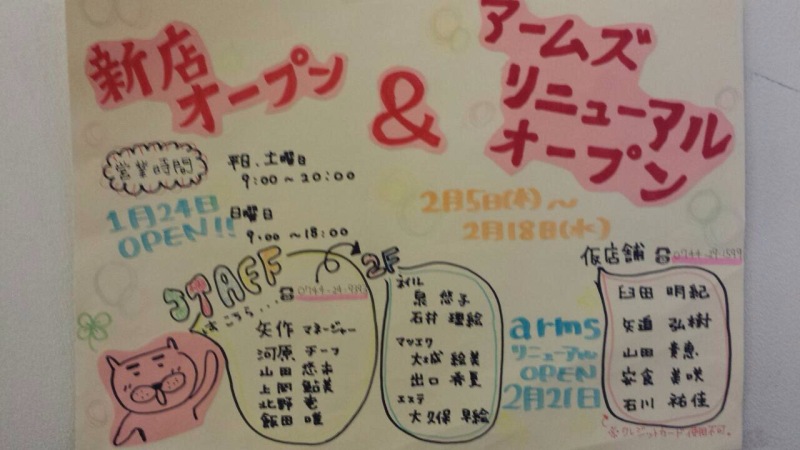 新店
オープン
&
アームズ
リニューアル
オープン
営業時間
平日、土曜日
9:00~20:00
1月24日
OPEN!!
日曜日
9:00~18:00
2月5日(木)~
2月18日(水)
STAFF
はこちら...
矢作 マネージャー
河原 チーフ
山田 悠未
上間 鮎美
北野 竜
飯田 瞳
2F
ネイル
泉 悠子
石井 理絵
マツエク
大城 絵美
出口 香里
エステ
大久保 早絵
arms
リニューアル
OPEN
2月21日
仮店舗
臼田 明紀
矢追 弘樹
山田 貴恵
家食 美咲
石川 祐佳
※クレジットカード使用不可。